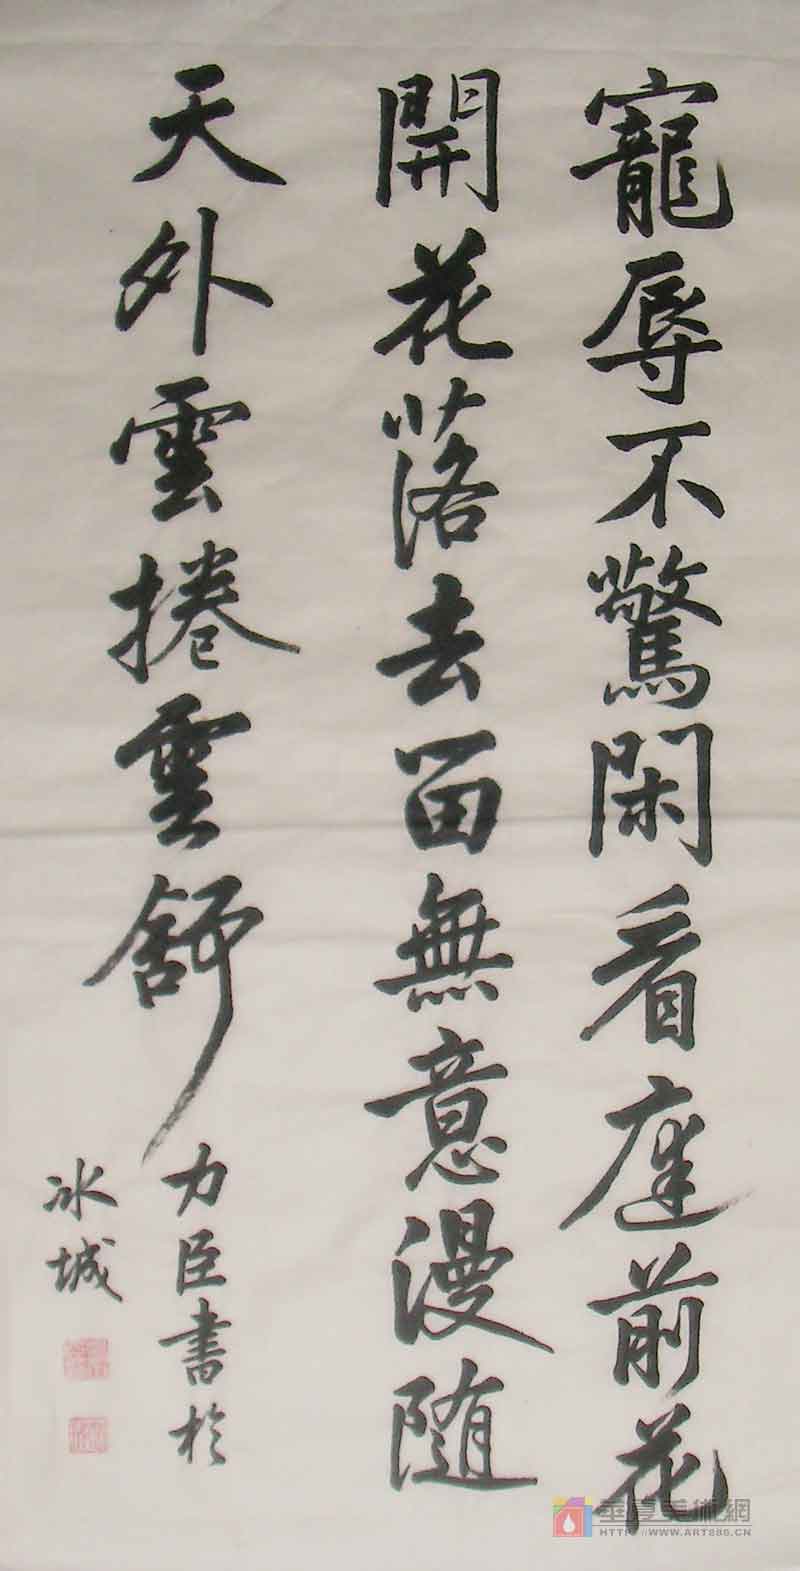 寵辱不驚閑看庭前花
開花落去留無意漫隨
天外雲捲雲舒
力臣書於
冰城
華夏美術網
HTTP://WWW.ART886.CN